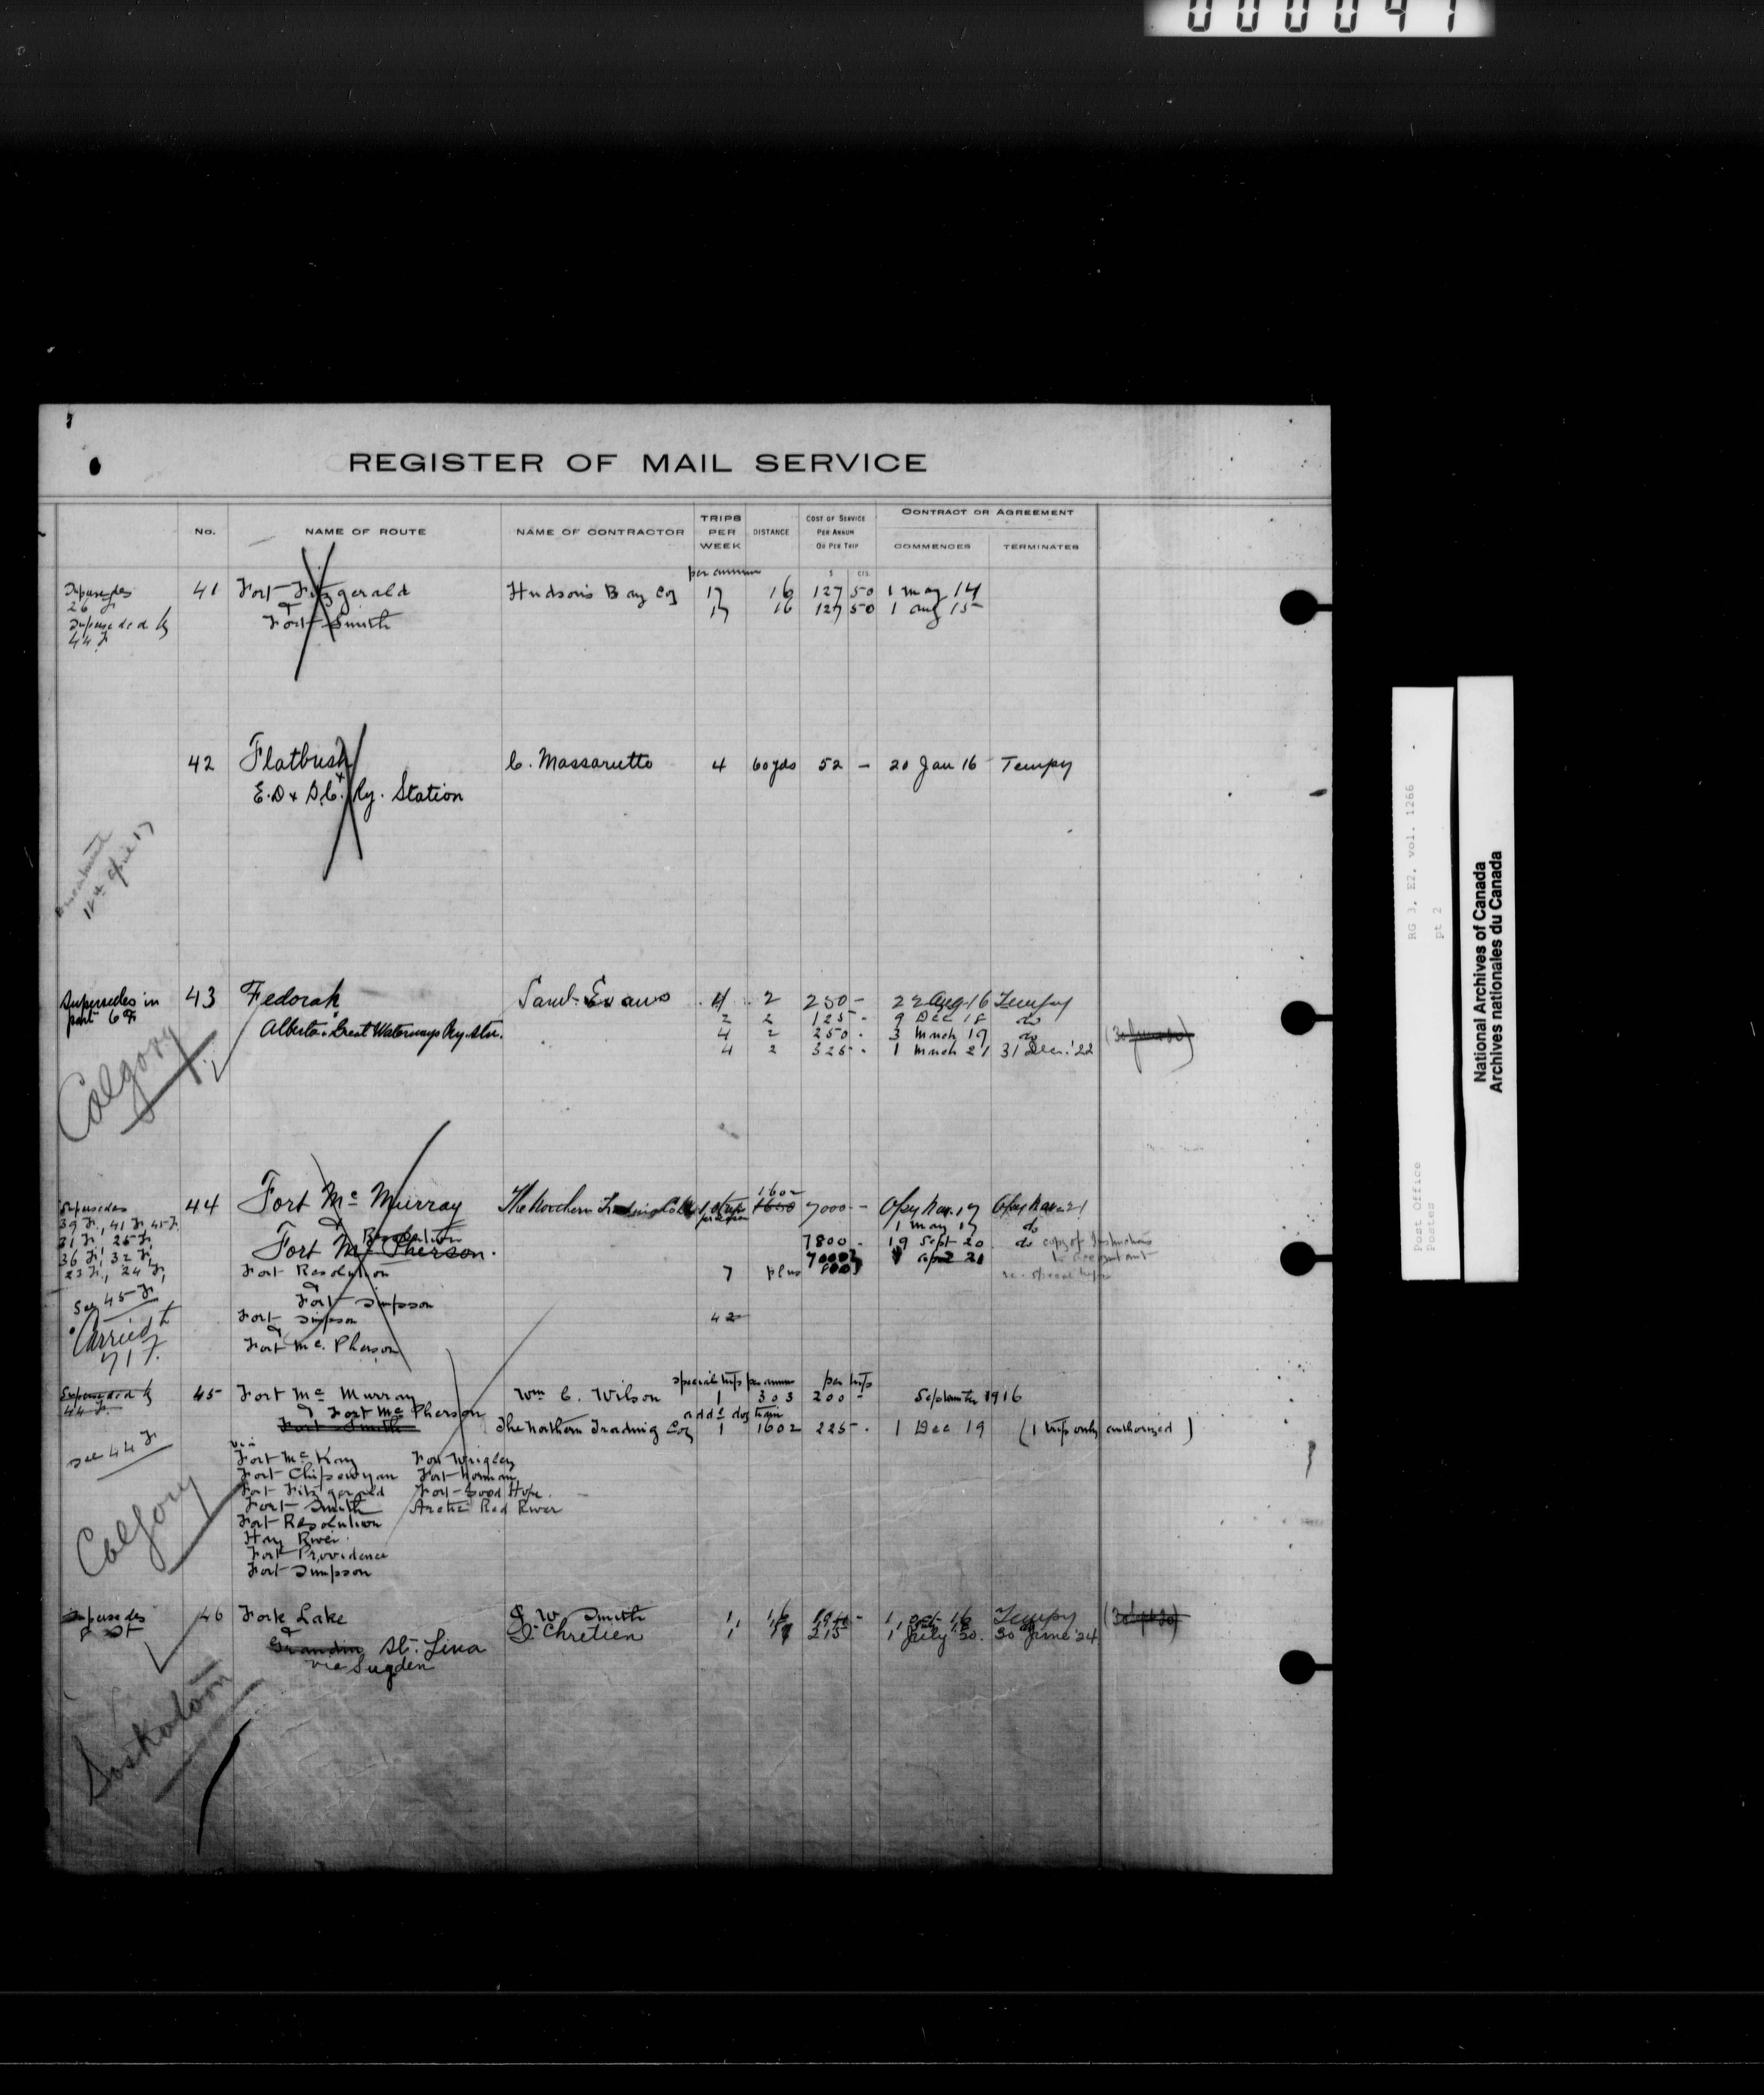 000041
REGISTER OF MAIL SERVICE
No. NAME OF ROUTE NAME OF CONTRACTOR TRIPS PER WEEK DISTANCE COST OF SERVICE PER ANNUM OR PER TRIP CONTRACT OR AGREEMENT
COMMENCES TERMINATES
$ CTS.
per annum
Supersedes 41 Fort Fitzgerald Hudson's Bay Coy 17 16 127 50 1 May 14
26 F & 17 16 127 50 1 Aug 15
Superseded by Fort Smith
44 F
42 Flatbush C. Massarutto 4 60 yds 52 - 20 Jan 16 Tempy
&
E.D & B.C. Ry. Station
12th April 17
Supersedes in 43 Fedorah Saml. Evans 4 2 250 - 22 Aug 16 Tempy
part 6 F & 2 2 125 - 9 Dec 18 do
Alberta & Great Waterways Ry. Stn. 4 2 250 - 3 March 19 do
4 2 325 - 1 March 21 31 Dec. '22 (30 June 20)
Calgary
Supersedes 44 Fort Mc Murray The Northern Trading Co 1602 1650 7000 -
39 F., 41 F., 45 F. & 1 May 17 do
31 F, 25 F, Resolution
36 F, 32 F, Fort Mc Pherson. 7800 - 19 Sept 20 do copy of Instructions
23 F., 24 F, 7000 to accountant
Fort Resolution 7 plus 800 re. special trips
See 45 F &
Fort Simpson
Carried to Fort Simpson 42
717. &
Fort Mc. Pherson
special trips per annum per trip
Superseded by 45 Fort Mc Murray Wm C. Wilson 1 303 200 - September 1916
44 F. & Fort Mc Pherson addl dog train
Fort Smith The Northern Trading Coy 1 1602 225 - 1 Dec 19 (1 trip only authorized)
See 44 F via
Fort Mc Kay Fort Wrigley
Fort Chipewyan Fort Norman
Fort Fitzgerald Fort Good Hope.
Fort Smith Arctic Red River
Fort Resolution
Hay River
Fort Providence
Fort Simpson
Calgary
Supersedes 46 Fork Lake W. Smith 1 16 1 Oct 16 Tempy
& Chretien 1 215 1 July 20. 30 June '24
Grandin St. Lina
via Sugden
Saskatoon
RG 3, E2, vol. 1266
pt 2
Post Office
Postes
National Archives of Canada
Archives nationales du Canada